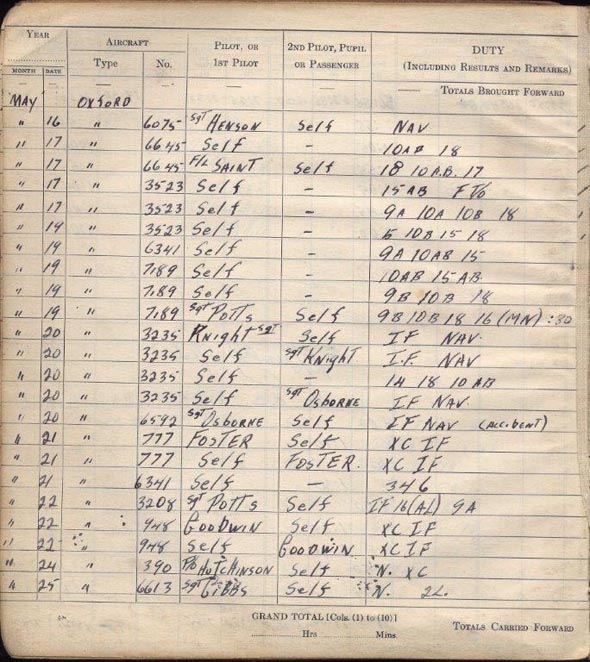 YEAR AIRCRAFT PILOT, OR 2ND PILOT, PUPIL DUTY
MONTH DATE Type No. 1ST PILOT OR PASSENGER (INCLUDING RESULTS AND REMARKS)
— — — — — — TOTALS BROUGHT FORWARD
MAY OXFORD
" 16 " 6075 Sgt HENSON Self NAV
" 17 " 6645 Self — 10AB 18
" 17 " 6645 F/L SAINT Self 18 10 A.B. 17
" 17 " 3523 Self — 15AB
" 17 " 3523 Self — 9A 10A 10B 18
" 19 " 3523 Self — 10B 15 18
" 19 " 6341 Self — 9A 10AB 15
" 19 " 7189 Self — 10AB 15 AB
" 19 " 7189 Self — 9B 10B 18
" 19 " 7189 Sgt POTTS Self 9B 10B 18 16 (MN) :30
" 20 " 3235 Knight Sgt Self IF NAV.
" 20 " 3235 Self Sgt Knight I.F. NAV
" 20 " 3235 Self — 14 18 10 AB
" 20 " 3235 Self Sgt Osborne IF NAV
" 20 " 6592 Sgt Osborne Self IF NAV (ACCIDENT)
" 21 " 777 FOSTER Self XC IF
" 21 " 777 Self FOSTER. XC IF
" 21 " 6341 Self — 346
" 22 " 3208 Sgt POTTS Self IF 16(AL) 9A
" 22 " 948 GOODWIN Self XC IF
" 22 " 948 Self GOODWIN XC IF
" 24 " 390 P/O HUTCHINSON Self N. XC
" 25 " 6613 Sgt GIBBS Self N. 2L.
GRAND TOTAL [Cols. (1) to (10)]
Hrs Mins.
TOTALS CARRIED FORWARD